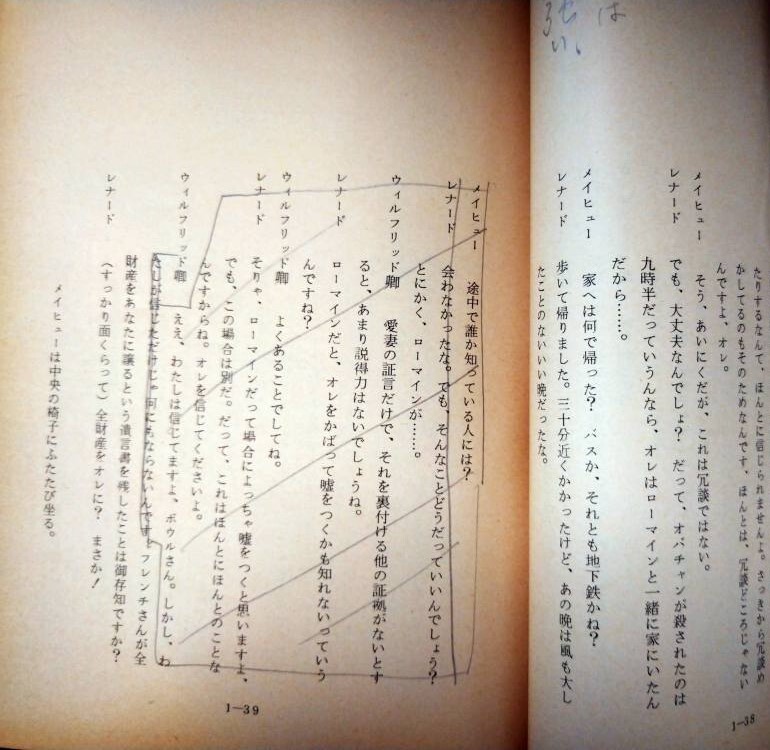 強せは
い。
たりするなんて、ほんとに信じられません。さっきから冗談め
かしてるのもそのためなんです、ほんとは、冗談どころじゃない
んですよ、オレ。
メイヒュー　そう、あいにくだが、これは冗談ではない。
レナード　でも、大丈夫なんでしょ？　だって、オバチャンが殺されたのは
九時半だっていうんなら、オレはローマインと一緒に家にいたん
だから……。
メイヒュー　家へは何で帰った？　バスか、それとも地下鉄かね？
レナード　歩いて帰りました。三十分近くかかったけど、あの晩は風も大し
たことのないいい晩だったな。
1—38
メイヒュー　途中で誰か知っている人には？
レナード　会わなかったな。でも、そんなことどうだっていいんでしょう？
とにかく、ローマインが……。
ウィルフリッド卿　愛妻の証言だけで、それを裏付ける他の証拠がないとす
ると、あまり説得力はないでしょうね。
レナード　ローマインだと、オレをかばって嘘をつくかも知れないっていう
んですね？
ウィルフリッド卿　よくあることでしてね。
レナード　そりゃ、ローマインだって場合によっちゃ嘘をつくと思いますよ、
でも、この場合は別だ。だって、これはほんとにほんとのことな
んですからね。オレを信じてくださいよ。
ウィルフリッド卿　ええ、わたしは信じてますよ、ボウルさん。しかし、わ
たしが信じただけじゃ何にもならないんです。フレンチさんが全
財産をあなたに譲るという遺言書を残したことは御存知ですか？
レナード　（すっかり面くらって）全財産をオレに？　まさか！
メイヒューは中央の椅子にふたたび坐る。
1—39